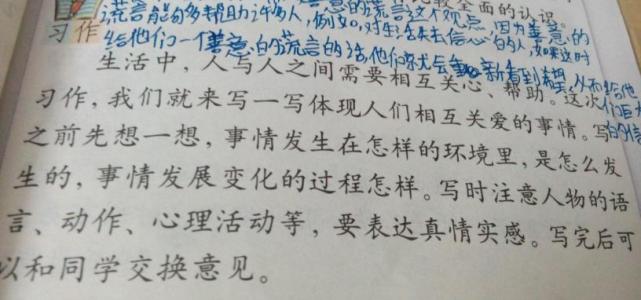 比较全面的认识。
意的谎言这个观点，因为善意的
谎言能够帮助许多人，例如，对生活失去信心的人，如果这时
给他们一个善意的谎言的话，他们就会重新看到希望，从而给他
习作
生活中，人与人之间需要相互关心、帮助。这次
习作，我们就来写一写体现人们相互关爱的事情。写
之前先想一想，事情发生在怎样的环境里，是怎么发
生的，事情发展变化的过程怎样。写时注意人物的语
言、动作、心理活动等，要表达真情实感。写完后可
以和同学交换意见。